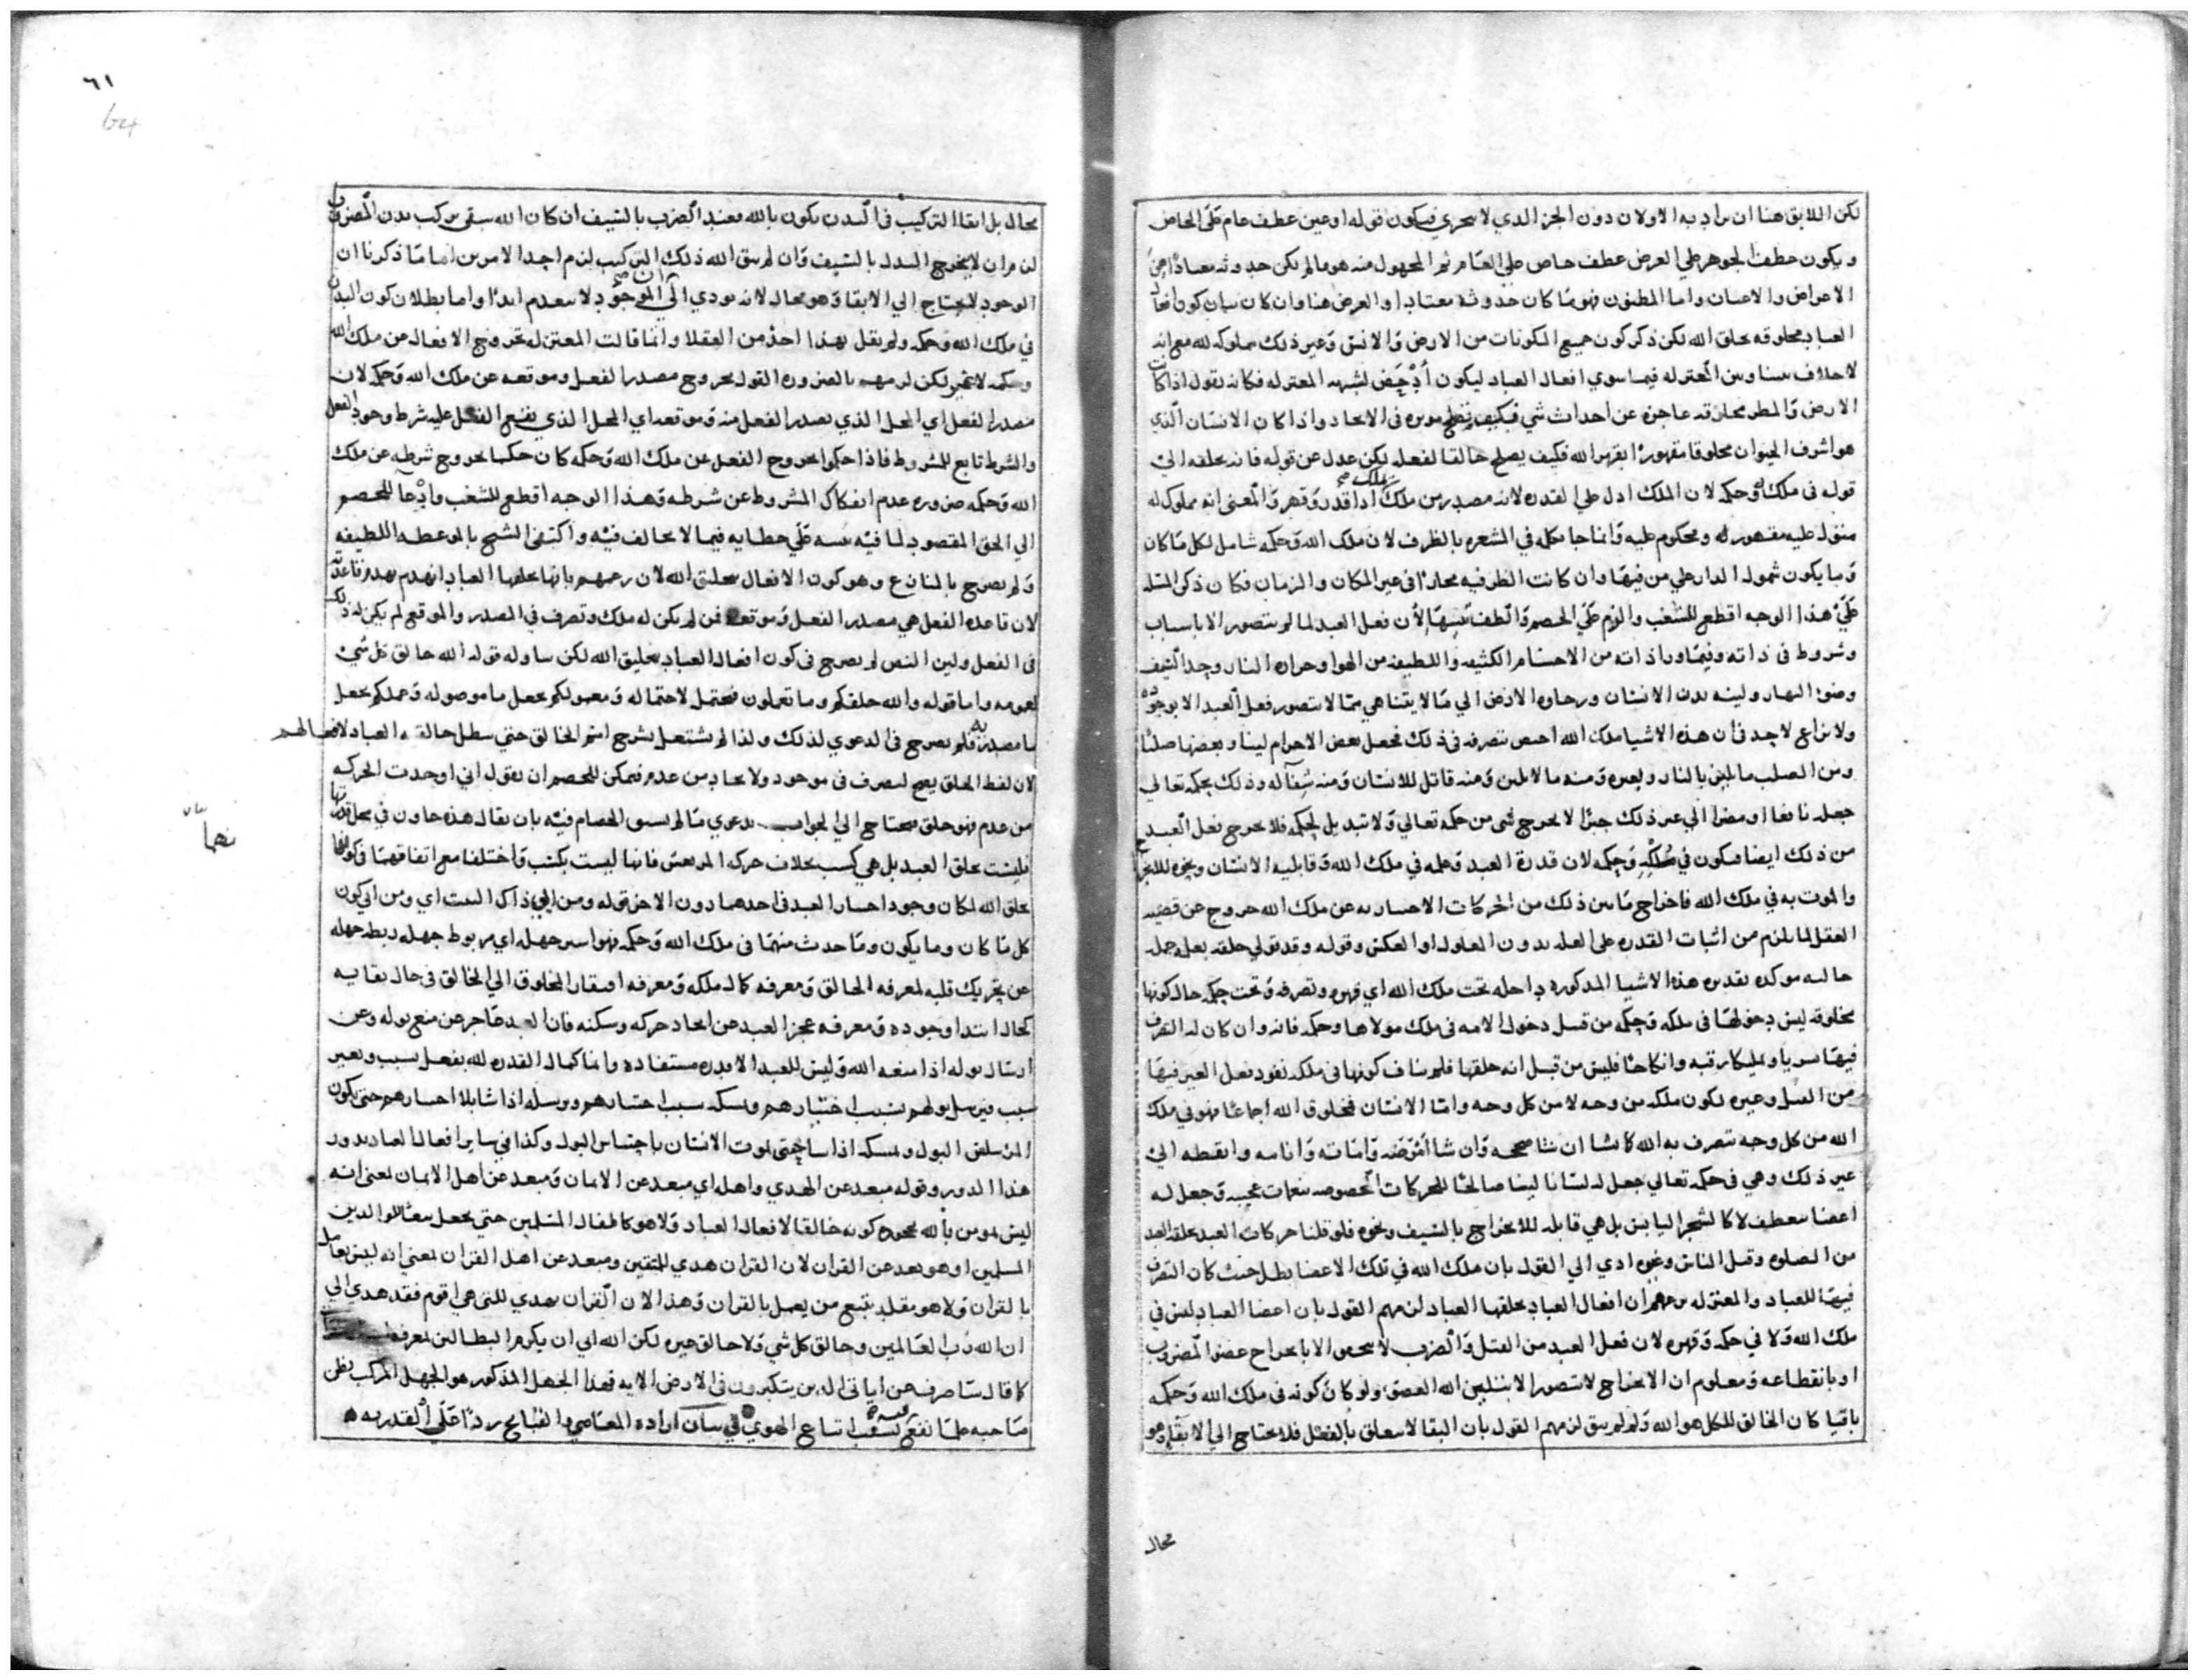 لكن اللايق هنا ان يراد به الاولان دون الجز الذي لا يتجزي فيكون قوله او عين عطف عام على الخاص
ويكون عطف الجوهر علي العرض عطف خاص علي العام ثم المجهول منه هو ما لم يكن حدوثه معتادا من
الاعراض والاعيان واما المظنون فهو ما كان حدوثه معتادا والعرض هنا وان كان بيان كون افعال
العباد مخلوقه بخلق الله لكن ذكر كون جميع المكونات من الارض والانس وغير ذلك مملوكه لله مع انه
لا خلاف بيننا وبين المعتزله فيما سوي افعال العباد ليكون أدحض لشبهه المعتزله فكانه يقول اذا كانت
الارض والمطر عاجزه عن احداث شي فكيف تصلح موثره في الايجاد واذا كان الانسان الذي
هو اشرف الحيوان مخلوقا مقهورا بقهر الله فكيف يصلح خالقا لفعله لكن عدل عن قوله فانه بخلقه الي
قوله في ملكه وحكمه لان الملك ادل علي القدره لانه مصدر من ملك ملك اذا قدر وقهر والمعنى انه مملوك له
عليه مقهور له ومحكوم عليه وانما جا بكله في الشعر بالظرف لان ملك الله وحكمه شامل لكل ما كان
وما يكون شمول الدار علي من فيها وان كانت الظرفيه مجازا في غير المكان والزمان فكان ذكر المسله
علي هذا الوجه اقطع للشغب والزم على الخصم والطف تنبيها لأن فعل العبد لما لم يتصور الا باسباب
وشروط في ذاته وفيما ورا ذاته من الاجسام الكثيفه واللطيفه من الهوا وحراره النار وحد السيف
وضوء النهار ولينه بدن الانسان ورخاوه الارض الي ما لا يتناهي مما لا يتصور فعل العبد الا بوجوده
ولا نزاع لاحد في أن هذه الاشيا ملك الله احسن تصرفه في ذلك فجعل بعض الاجرام لينا وبعضها صلبا
ومن الصلب ما يلين بالنار وبغيره ومنه ما لا يلين ومنه قاتل للانسان ومنه شفآ له وذلك بحكمه تعالي
جعله نافعا او مضرا الي غير ذلك جبرا لا يخرج شي من حكمه تعالي ولا تبديل لحكمه فلا يخرج فعل العبد
من ذلك ايضا فيكون في ملكه وحكمه لان قدرة العبد وعلمه في ملك الله وقابليه الانسان ونحوه للجرح
والموت به في ملك الله فاخراج ما بين ذلك من الحركات الاختياريه عن ملك الله خروج عن قضيه
العقل لما يلزم من اثبات القدره على العله بدون المعلول او العكس وقوله وقد تولي خلقه بعلم جمله
حاليه موكده تقديره هذه الاشيا المذكوره داخله تحت ملك الله اي قهره وتصرفه وتحت حكمه حال كونها
مخلوقه ليس دخولها في ملكه وحكمه من قبيل دخول الامه في ملك مولاها وحكمه فانه وان كان له التصرف
فيها تسريا وتمليكا رقبه وانكاحا فليس من قبل انه خلقها فلم يناف كونها في ملكه نفوذ فعل الغير فيها
من القتل وغيره لكون ملكه من وجه لا من كل وجه واما الانسان فمخلوق الله اجماعا فهو في ملك
الله من كل وجه تصرف به الله كما شا ان شا صححه وان شا أمرضه واماته وانامه وايقظه الي
غير ذلك وهي في حكمه تعالي جعل له لسانا لينا صالحا للحركات المخصوصه بنغمات عجيبه وجعل له
اعضا تنعطف لا كالشجر اليابس بل هي قابله للانخراج بالسيف ونحوه فلو قلنا حركات العبد بخلقه العبد
من الصلوه وقتل الناس وغيره ادي الي القول بان ملك الله في تلك الاعضا بطل حيث كان التصرف
فيها للعباد والمعتزله بزعمهم ان افعال العباد بخلقها العباد لزمهم القول بان اعضا العباد ليس في
ملك الله ولا في حكمه وقهره لان فعل العبد من القتل والضرب لا يتحصل الا بانجراح عضو المضروب
او بانقطاعه ومعلوم ان الانجراح لا يتصور الا بتليين الله العضو ولو كان كونه في ملك الله وحكمه
باقيا كان الخالق للكل هو الله ولو لم يبق لزمهم القول بان البقا لا يتعلق بالفضل فلا يحتاج الي الابقا وهو
محال
٦١
64
محال بل ابقا التركيب في البدن يكون بالله فعند الضرب بالسيف ان كان الله يبقي تركيب بدن المضروب
لزم ان لا يخرج البدن بالسيف وان لم يبق الله ذلك التركيب لزم احد الامرين اما ما ذكرنا ان
الوجود لا يحتاج الي الابقا وهو محال لانه يودي الى أن الموجود لا ينعدم ابدا واما بطلان كون البدن
في ملك الله وحكمه ولم يقل بهذا احد من العقلا وانما قالت المعتزله بخروج الافعال من ملك الله
وحكمه لا غير لكن لزمهم بالضروره القول بخروج مصدر الفعل وموقعه عن ملك الله وحكمه لان
مصدر الفعل اي المحل الذي يصدر الفعل منه وموقعه اي المحل الذي يقع الفعل عليه شرط وجود الفعل
والشرط تابع للمشروط فاذا حكموا بخروج الفعل عن ملك الله وحكمه كان حكما بخروج شرطه عن ملك
الله وحكمه ضروره عدم انفكاك المشروط عن شرطه وهذا الوجه اقطع للشغب وادعآ للخصم
الي الحق المقصود لما فيه تنبيه على خطايه فيما لا يخالف فيه واكتفى الشيخ بالموعظه اللطيفه
ولم يصرح بالمتنازع وهو كون الافعال بخلق الله لان زعمهم بانها بخلقها العباد انهدم بهدم قاعدته
لان قاعده الفعل هي مصدر الفعل وموقعه فمن لم يكن له ملك وتصرف في المصدر والموقع لم يكن له ذلك
في الفعل وليس النص لم يصرح في كون افعال العباد بخليق الله لكن يتناوله قوله الله خالق كل شي
لعمومه واما قوله والله خلقكم وما تعملون محتمل لاحتماله ومعمولكم بجعل ما موصوله وعملكم بجعل
ما مصدريه فلم يصرح في الدعوي لذلك ولذا لم يشتغل بشرح اسم الخالق حتي يبطل خالقيه العباد لافعالهم
لان لفظ الخلق يصح لتصرف في موجود ولايجاد من عدم فيمكن للخصم ان يقول اني اوجدت الحركه
من عدم فهو خلق محتاج الي الجواب بدعوي ما لم يسبق الخصام فيه بان يقال هذه حادث في محل قدرتها
فليست بخلق العبد بل هي كسب بخلاف حركه المرتعش فانها ليست بكسب واختلفا مع اتفاقهما في كونهما
بخلق الله لمكان وجود اختيار العبد في احدهما دون الاخر قوله ومن ابي ذاك البيت اي ومن ابي كون
كل ما كان وما يكون وما حدث منهما في ملك الله وحكمه فهو اسير جهله اي مربوط جهله ربطه جهله
عن تحريك قلبه لمعرفه الخالق ومعرفه كمال ملكه ومعرفه افتقار المخلوق الي الخالق في حال بقايه
كحال ابتدا وجوده ومعرفه عجز العبد عن ايجاد حركه وسكنه فان العبد عاجز عن منع بوله وعن
ارسال بوله اذا منعه الله وليس للعبد الا قدره مستفاده وانما كمال القدره لله يفعل بسبب وبغير
سبب فيرسل بولهم بسبب اختيارهم ويمسكه بسبب اختيارهم ويرسله اذا شا بلا اختيارهم حتى يكون
المرسلين البول ويمسكه اذا شا حتى يموت الانسان باحتباس البول وكذا في ساير افعال العباد يدور
هذا الدور وقوله مبعد عن الهدي واهله اي مبعد عن الايمان ومبعد عن اهل الايمان بمعنى انه
ليس بمومن بألله لجحوده كونه خالقا لافعال العباد ولا هو كاطفال المسلمين حتى يجعل تبعا للوالدين
المسلمين او هو بعد عن القران لان القران هدي للمتقين ومبعد عن اهل القران بمعني انه ليس بعامل
بالقران ولا هو مقلد يتبع من يعمل بالقران وهذا لان القران يهدي للتي هي اقوم فقد هدي الي
ان الله رب العالمين وخالق كل شي ولا خالق غيره لكن الله ابي ان يكرم البطالين بمعرفه
كما قال سا صرف عن اياتي الذين يتكبرون في الارض الايه فهذا الجهل المذكور هو الجهل المركب يظن
صاحبه علما لفرعيه بسبب اتباع الهوي في بيان اراده المعاصي والقبايح ردا على القدريه
نهما
بيان